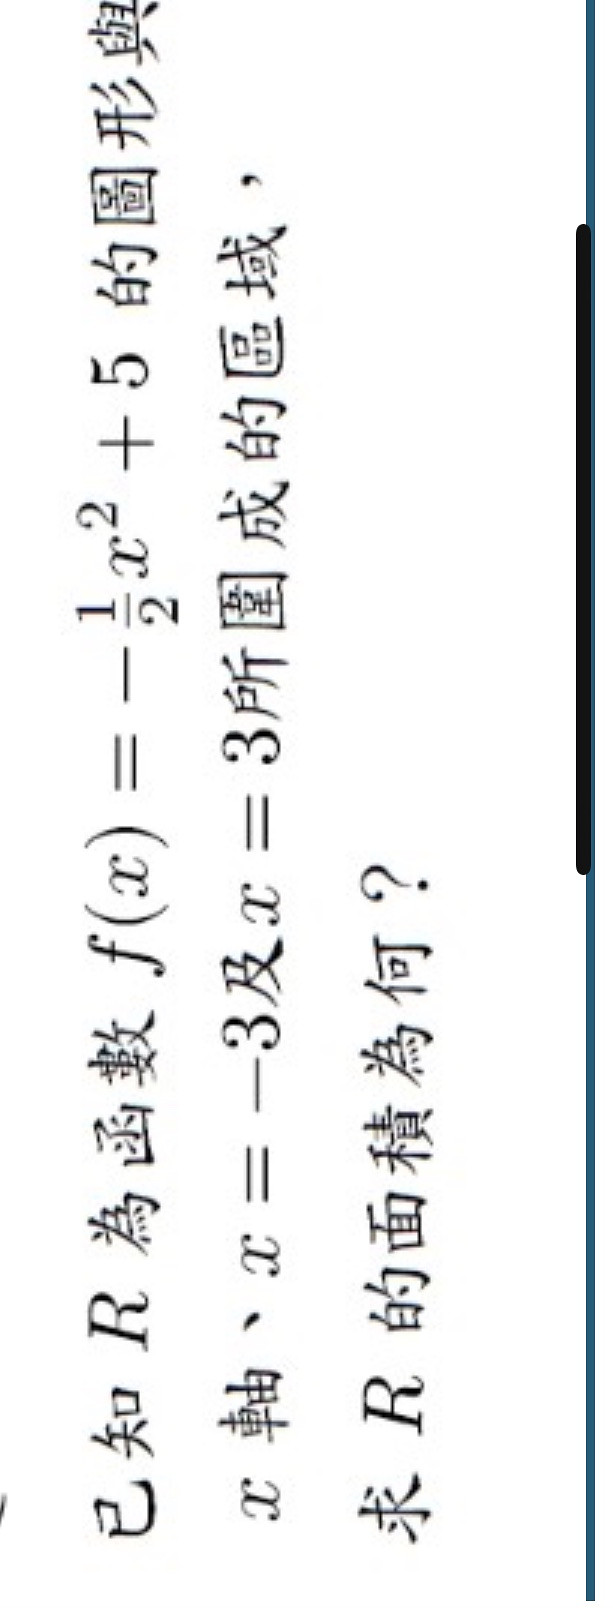 已知 R 為函數 f(x) = -\frac{1}{2}x^2 + 5 的圖形與
x 軸、x = -3及x = 3所圍成的區域，
求 R 的面積為何？